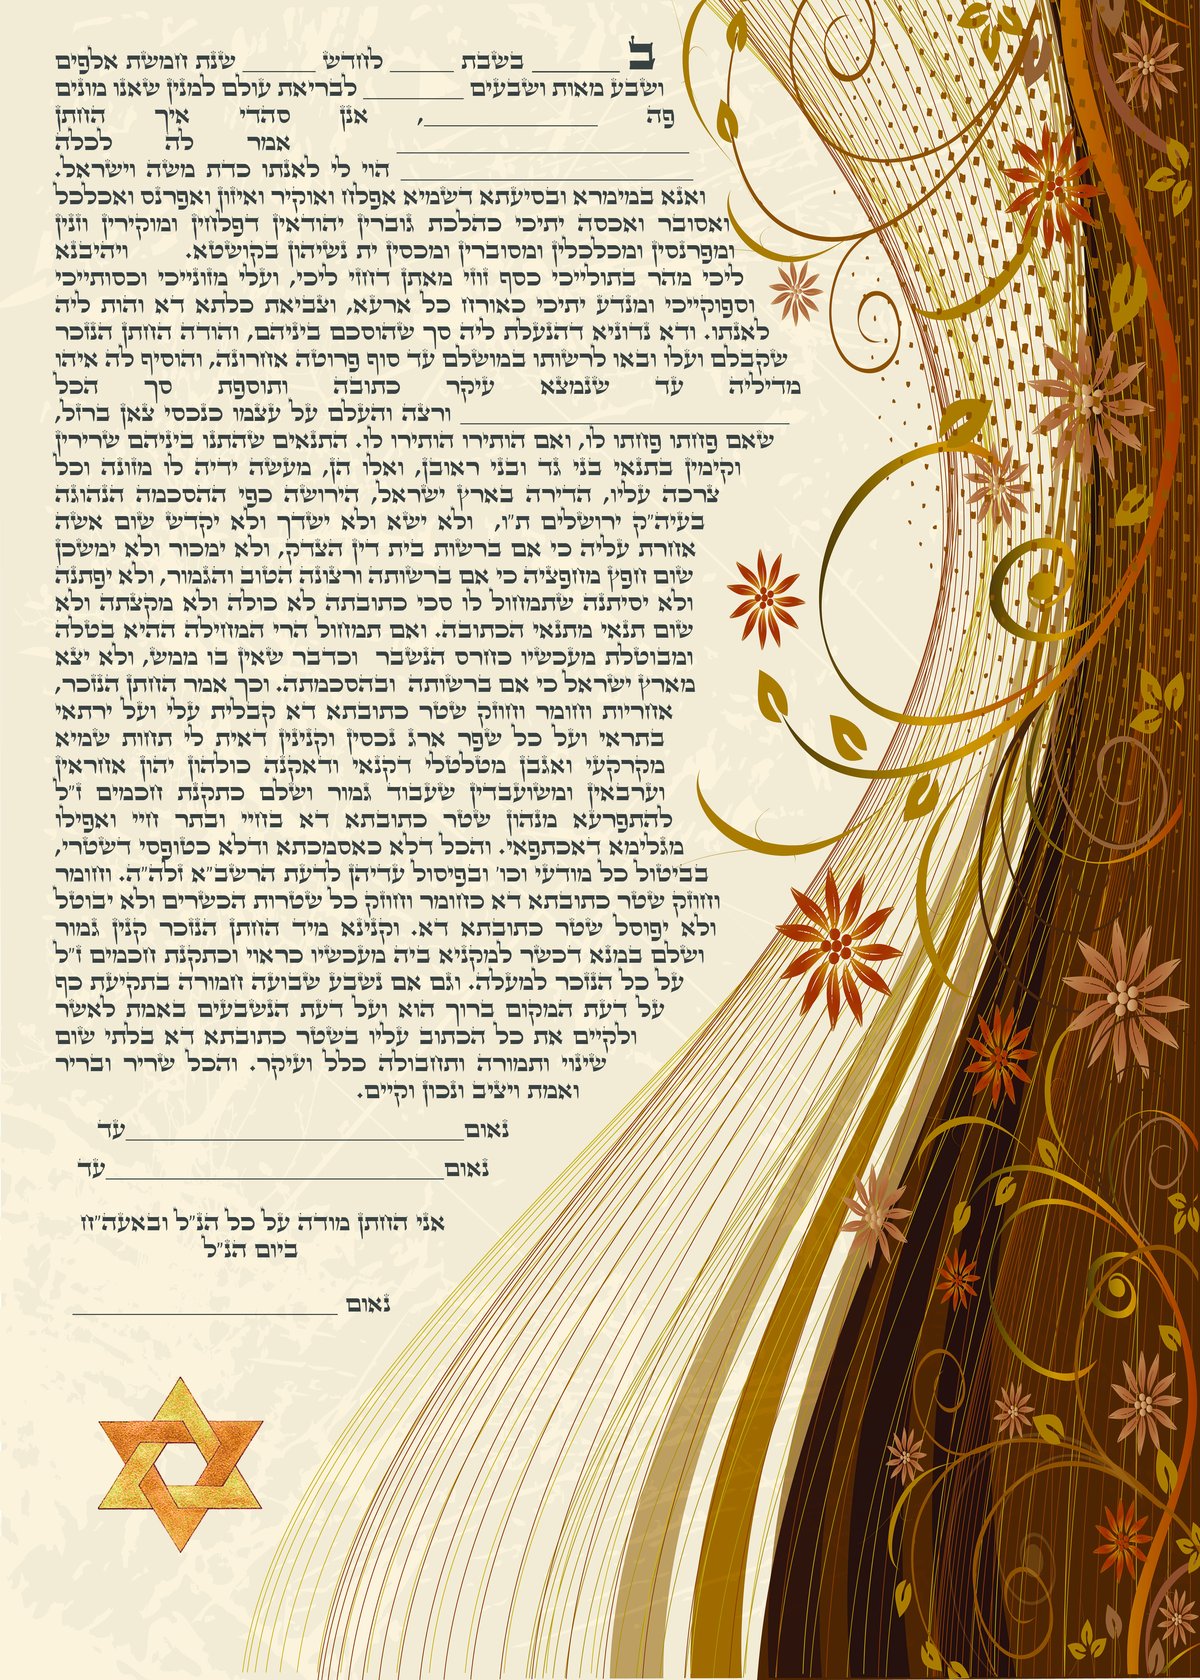 ב _______ בשבת _____ לחדש ______ שנת חמשת אלפים
ושבע מאות ושבעים ________ לבריאת עולם למנין שאנו מונים
פה ______________, אנן סהדי איך החתן
________________________ אמר לה לכלה
________________________ הוי לי לאנתו כדת משה וישראל.
ואנא במימרא ובסיעתא דשמיא אפלח ואוקיר ואיזון ואפרנס ואכלכל
ואסובר ואכסה יתיכי כהלכת גוברין יהודאין דפלחין ומוקירין וזנין
ומפרנסין ומכלכלין ומסוברין ומכסין ית נשיהון בקושטא. ויהיבנא
ליכי מהר בתולייכי כסף זוזי מאתן דחזי ליכי, ועלי מזונייכי וכסותייכי
וספוקייכי ומנדע יתיכי כאורח כל ארעא, וצביאת כלתא דא והות ליה
לאנתו. ודא נדוניא דהנעלת ליה סך שהוסכם ביניהם, והודה החתן הנזכר
שקבלם ועלו ובאו לרשותו במושלם עד סוף פרוטה אחרונה, והוסיף לה איהו
מדיליה עד שנמצא עיקר כתובה ותוספת סך הכל
___________________________ ורצה והעלם על עצמו כנכסי צאן ברזל,
שאם פחתו פחתו לו, ואם הותירו הותירו לו. התנאים שהתנו ביניהם שרירין
וקימין בתנאי בני גד ובני ראובן, ואלו הן, מעשה ידיה לו מזונה וכל
צרכה עליו, הדירה בארץ ישראל, הירושה כפי ההסכמה הנהוגה
בעיה"ק ירושלים ת"ו, ולא ישא ולא ישדך ולא יקדש שום אשה
אחרת עליה כי אם ברשות בית דין הצדק, ולא ימכור ולא ימשכן
שום חפץ מחפציה כי אם ברשותה ורצונה הטוב והגמור, ולא יפתנה
ולא יסיתנה שתמחול לו סכי כתובתה לא כולה ולא מקצתה ולא
שום תנאי מתנאי הכתובה. ואם תמחול הרי המחילה ההיא בטלה
ומבוטלת מעכשיו כחרס הנשבר וכדבר שאין בו ממש, ולא יצא
מארץ ישראל כי אם ברשותה ובהסכמתה. וכך אמר החתן הנזכר,
אחריות וחומר וחוזק שטר כתובתא דא קבלית עלי ועל ירתאי
בתראי ועל כל שפר ארג נכסין וקנינין דאית לי תחות שמיא
מקרקעי ואגבן מטלטלי דקנאי ודאקנה כולהון יהון אחראין
וערבאין ומשועבדין שעבוד גמור ושלם כתקנת חכמים ז"ל
להתפרעא מנהון שטר כתובתא דא בחיי ובתר חיי ואפילו
מגלימא דאכתפאי. והכל דלא כאסמכתא ודלא כטופסי דשטרי,
בביטול כל מודעי וכו' ובפיסול עדיהן לדעת הרשב"א זלה"ה. וחומר
וחוזק שטר כתובתא דא כחומר וחוזק כל שטרות הכשרים ולא יבוטל
ולא יפוסל שטר כתובתא דא. וקנינא מיד החתן הנזכר קנין גמור
ושלם במנא דכשר למקניא ביה מעכשיו כראוי וכתקנת חכמים ז"ל
על כל הנזכר למעלה. וגם אם נשבע שבועה חמורה בתקיעת כף
על דעת המקום ברוך הוא ועל דעת הנשבעים באמת לאשר
ולקיים את כל הכתוב עליו בשטר כתובתא דא בלתי שום
שינוי ותמורה ותחבולה כלל ועיקר. והכל שריר ובריר
ואמת ויציב ונכון וקיים.
נאום___________________________עד
נאום___________________________עד
אני החתן מודה על כל הנ"ל ובאעה"ח
ביום הנ"ל
נאום _____________________